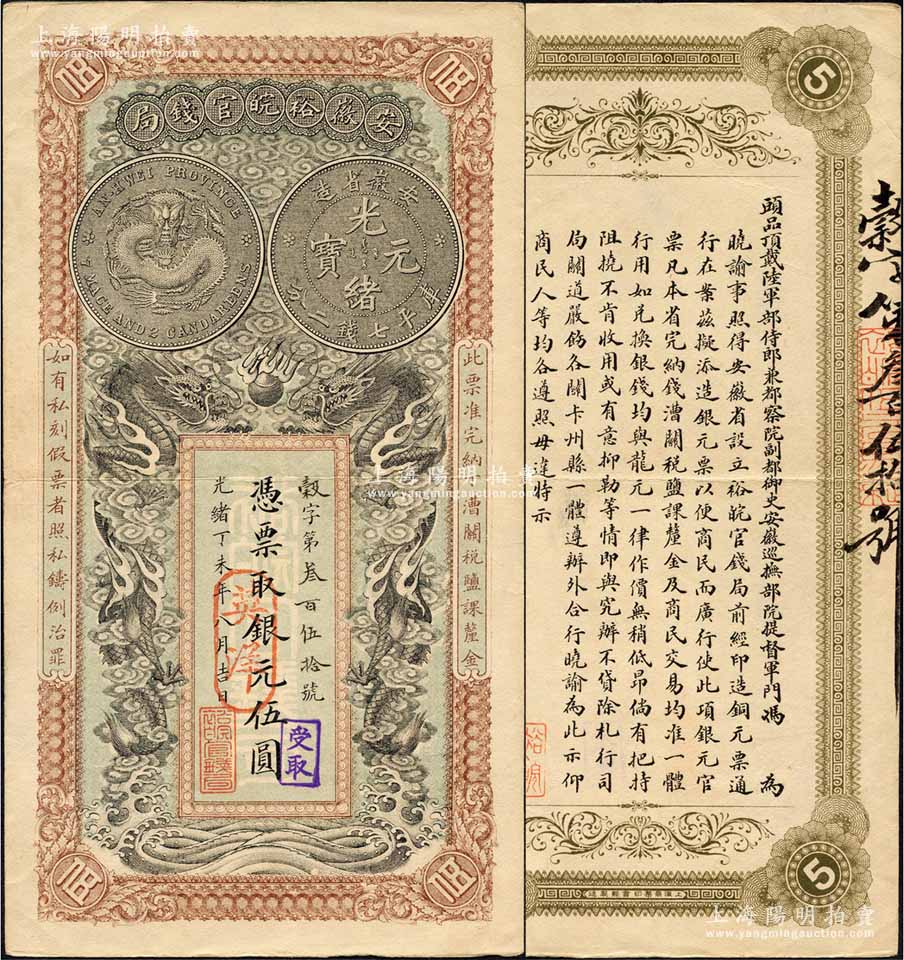 上海陽明拍賣
www.yangmingauction.com
安徽裕皖官錢局
AN-HWEI PROVINCE
7 MACE AND 2 CANDAREENS
安徽省造
光緒元寶
庫平七錢二分
此票准完納錢漕關稅鹽課釐金
如有私刻假票者照私鑄例治罪
穀字第叁百伍拾號
憑票取銀元伍圓
光緒丁未年八月吉日
英洋
受取
伍
伍
伍
伍
上海陽明拍賣
www.yangmingauction.com
5
5
頭品頂戴陸軍部侍郎兼都察院副都御史安徽巡撫部院提督軍門馮 為
曉諭事照得安徽省設立裕皖官錢局前經印造銅元票通
行在案茲擬添造銀元票以便商民而廣行使此項銀元官
票凡本省完納錢漕關稅鹽課釐金及商民交易均准一體
行用如兌換銀錢均與龍元一律作價無稍低昂倘有把持
阻撓不肯收用或有意抑勒等情即與究辦不貸除札行司
局關道嚴飭各關卡州縣一體遵辦外合行曉諭為此示仰
商民人等均各遵照毋違特示
上海陽明拍賣
www.yangmingauction.com